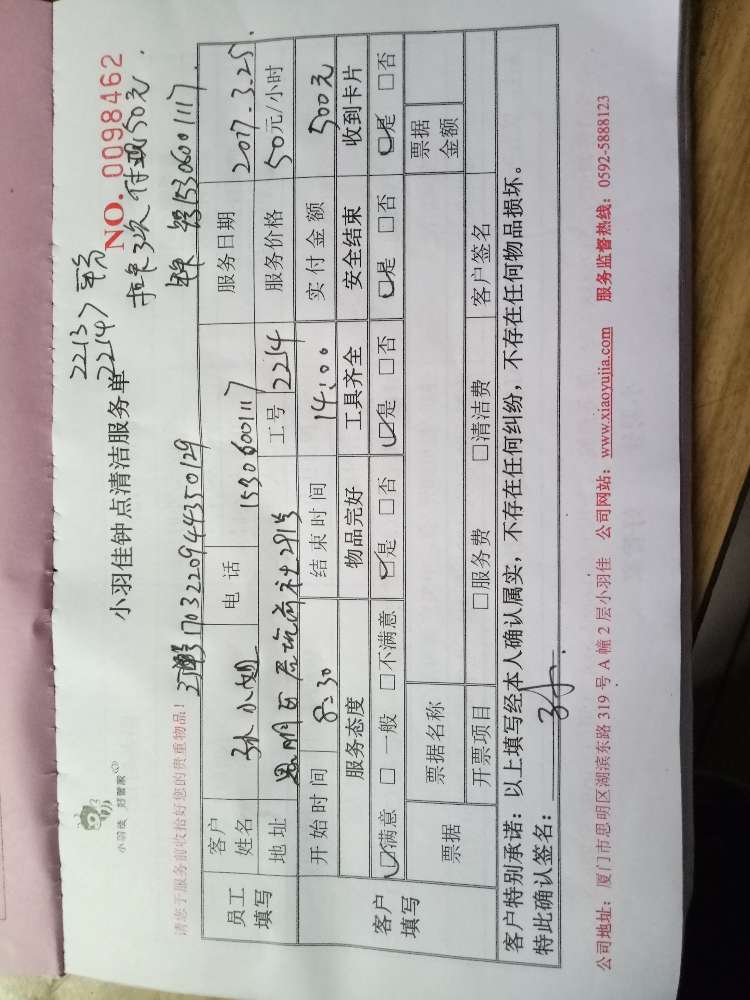 2213>
2214>
小羽佳 好管家
小羽佳钟点清洁服务单
NO. 0098462
3次 付现150元.
请您于服务前收拾好您的贵重物品!
1703220944350129
15306001117.
员工填写
客户姓名
小姐
电话
15306001117
服务日期
2017.3.25.
地址
思明
291号
工号
2214
服务价格
50元/小时
客户填写
开始时间
8:30
结束时间
14:00
实付金额
500元
服务态度
物品完好
工具齐全
安全结束
收到卡片
☑满意 □一般 □不满意
☑是 □否
☑是 □否
☑是 □否
☑是 □否
票据
票据名称
票据金额
开票项目
□服务费 □清洁费
客户签名
客户特别承诺:以上填写经本人确认属实,不存在任何纠纷,不存在任何物品损坏。
特此确认签名:
公司地址:厦门市思明区湖滨东路 319 号 A 幢 2 层小羽佳 公司网站:www.xiaoyujia.com 服务监督热线:0592-5888123